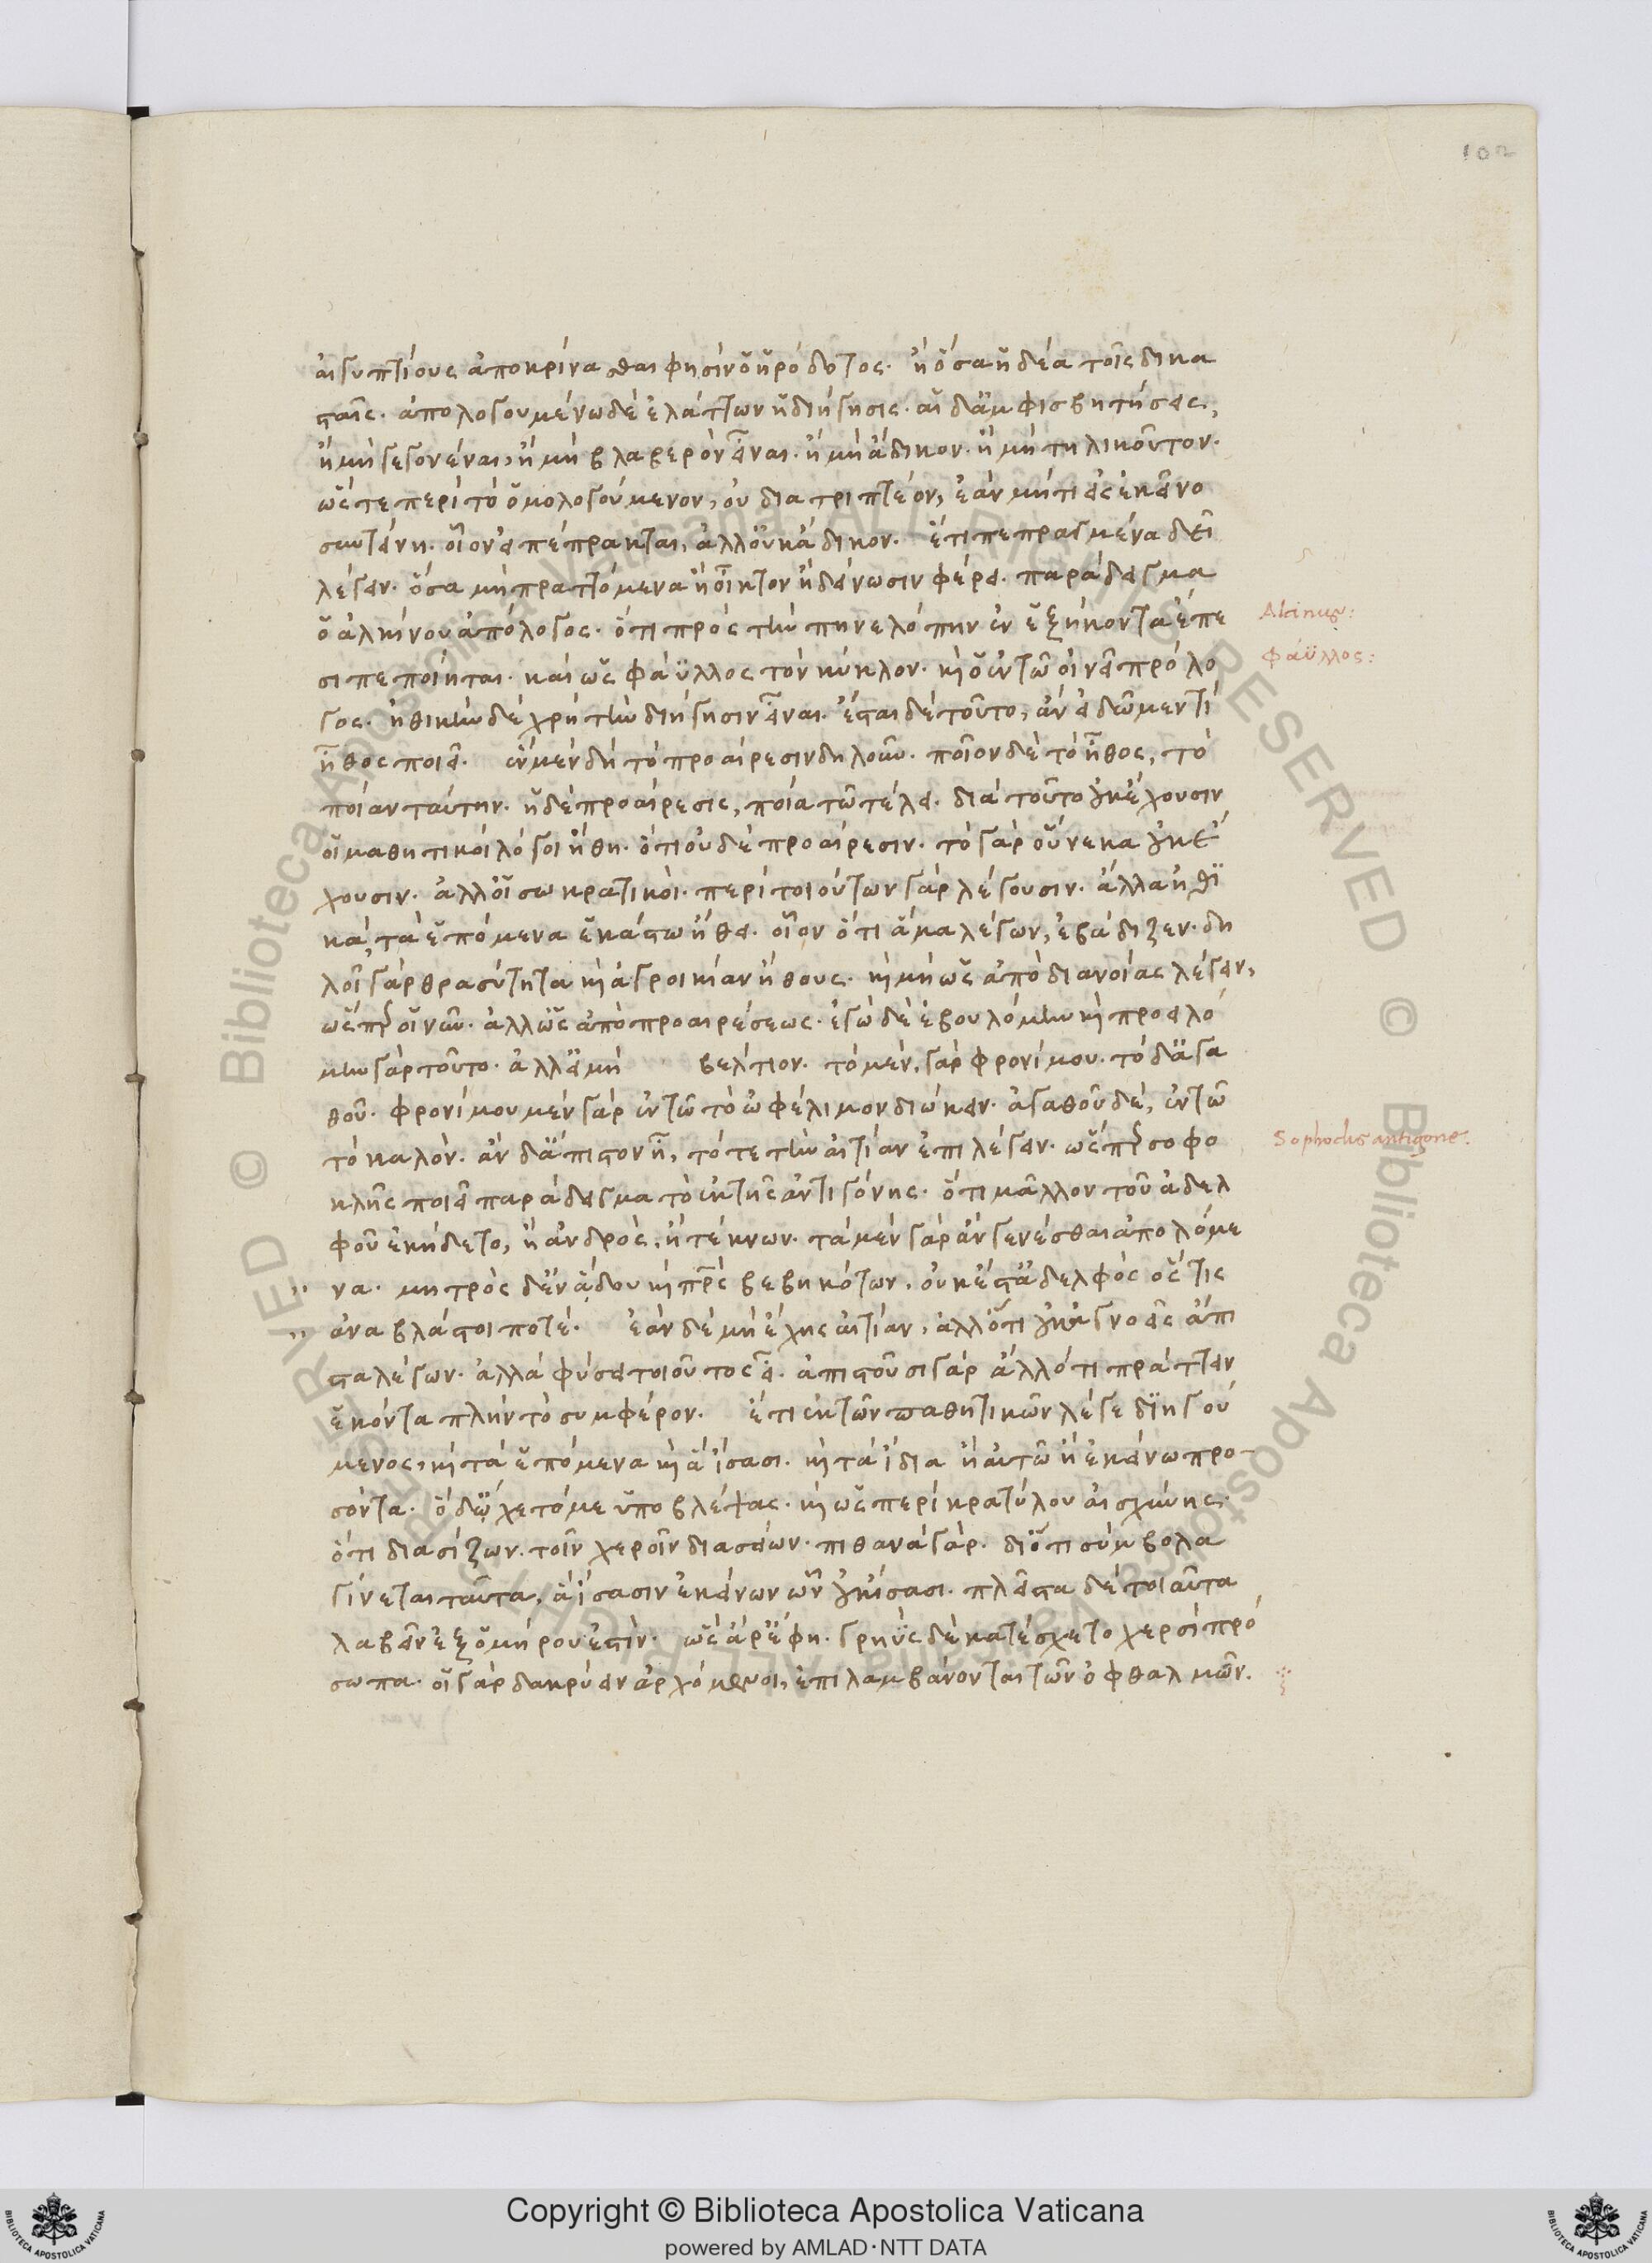 102
αἰγυπτίους ἀποκρίνασθαι φησὶν ὁ ἡρόδοτος. ἢ ὅσα ἡδέα τοῖς δικα
σταῖς. ἀπολογουμένω δὲ ἐλάττων ἡ διήγησις. αἱ δ' ἀμφισβητήσεις,
ἢ μὴ γεγονέναι, ἢ μὴ βλαβερὸν εἶναι. ἢ μὴ ἄδικον. ἢ μὴ τηλικοῦτον.
ὥστε περὶ τὸ ὁμολογούμενον, οὐ διατριπτέον, ἐὰν μήτι εἰς ἐκεῖνο
συντείνη. οἷον εἰ πέπρακται, ἀλλ' οὐκ ἄδικον. ἔτι πεπραγμένα δεῖ
λέγειν. ὅσα μὴ πραττόμενα ἢ οἶκτον ἢ δείνωσιν φέρει. παράδειγμα
ὁ ἀλκίνου ἀπόλογος. ὅτι πρὸς τὴν πηνελόπην ἐν ἑξήκοντα ἔπε
σι πεποίηται. καὶ ὡς φάϋλλος τὸν κύκλον. καὶ ὁ ἐν τῶ οἰνεῖ πρόλο
γος. ἠθικὴν δὲ χρὴ τὴν διήγησιν εἶναι. ἔσται δὲ τοῦτο, ἂν εἰδῶμεν τί
ἦθος ποιεῖ. ἓν μὲν δὴ τὸ προαίρεσιν δηλοῦν. ποῖον δὲ τὸ ἦθος, τὸ
ποίαν ταύτην. ἡ δὲ προαίρεσις, ποία τῶ τέλει. διὰ τοῦτο οὐκ ἔχουσιν
οἱ μαθητικοὶ λόγοι ἤθη. ὅτι οὐδὲ προαίρεσιν. τὸ γὰρ οὕνεκα οὐκ ἔ
χουσιν. ἀλλ' οἱ σωκρατικοί. περὶ τοιούτων γὰρ λέγουσιν. ἄλλα ἠθι
κά, τὰ ἑπόμενα ἑκάστω ἤθει. οἷον ὅτι ἅμα λέγων, ἐβάδιζεν. δη
λοῖ γὰρ θρασύτητα καὶ ἀγροικίαν ἤθους. καὶ μὴ ὡς ἀπὸ διανοίας λέγειν,
ὥσπερ οἱ νῦν. ἀλλ' ὡς ἀπὸ προαιρέσεως. ἐγὼ δὲ ἐβουλόμην καὶ προειλό
μην γὰρ τοῦτο. ἀλλ' εἰ μὴ βέλτιον. τὸ μὲν, γὰρ φρονίμου. τὸ δ' ἀγα
θοῦ. φρονίμου μὲν γὰρ ἐν τῶ τὸ ὠφέλιμον διώκειν. ἀγαθοῦ δὲ, ἐν τῶ
τὸ καλόν. ἂν δ' ἄπιστον ἦ, τότε τὴν αἰτίαν ἐπιλέγειν. ὥσπερ σοφο
κλῆς ποιεῖ παράδειγμα τὸ ἐκ τῆς ἀντιγόνης. ὅτι μᾶλλον τοῦ ἀδελ
φοῦ ἐκήδετο, ἢ ἀνδρὸς, ἢ τέκνων. τὰ μὲν γὰρ ἂν γενέσθαι ἀπολόμε
να. μητρὸς δ' ἐν ἅδου καὶ πρς βεβηκότων, οὐκ ἔστ' ἀδελφὸς ὅς τις
ἀναβλάστοι ποτέ. ἐὰν δὲ μὴ ἔχης αἰτίαν, ἀλλ' ὅτι οὐκ ἀγνοεῖς ἄπι
στα λέγων. ἀλλὰ φύσει τοιοῦτος εἶ. ἀπιστοῦσι γὰρ ἄλλό τι πράττειν
ἑκόντα πλὴν τὸ συμφέρον. ἔτι ἐκ τῶν παθητικῶν λέγε διηγού
μενος, καὶ τὰ ἑπόμενα καὶ ἃ ἴσασι. καὶ τὰ ἴδια ἢ αὐτῶ ἢ ἐκείνω προ-
σόντα. ὁ δ' ὤχετό με ὑποβλέψας. καὶ ὡς περὶ κρατύλου αἰσχίνης.
ὅτι διασίζων. τοῖν χεροῖν διασείων. πιθανὰ γάρ. διότι σύμβολα
γίνεται ταῦτα, ἃ ἴσασιν ἐκείνων ὧν οὐκ ἴσασι. πλεῖστα δὲ τοιαῦτα
λαβεῖν ἐξ ὁμήρου ἐστίν. ὡς ἄρ' ἔφη. γρηῢς δὲ κατέσχετο χερσὶ πρό
σωπα. οἱ γὰρ δακρύειν ἀρχόμενοι, ἐπιλαμβάνονται τῶν ὀφθαλμῶν.
Alcinus:
φάϋλλος:
Sophoclis antigone.
Copyright © Biblioteca Apostolica Vaticana
powered by AMLAD·NTT DATA